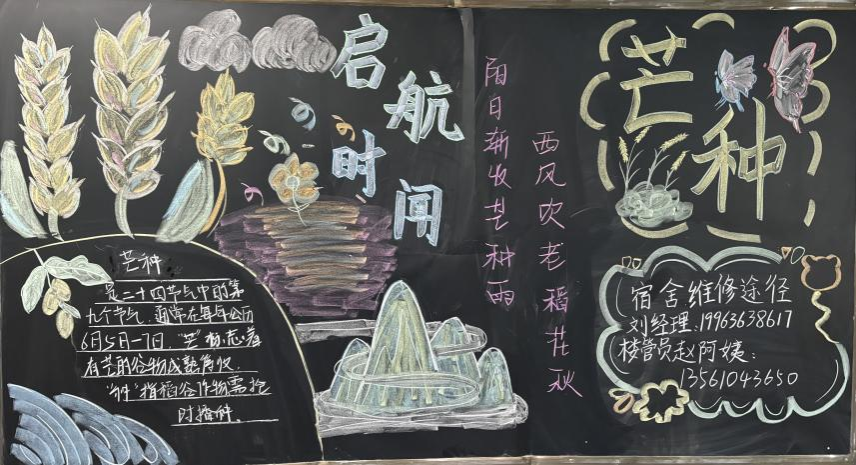 启航
时闻
芒种
是二十四节气中的第
九个节气.通常在每年公历
6月5日-7日."芒"标志着
有芒的谷物成熟
"种"指稻谷作物需抢
时播种.
阳日渐收芒种雨
西风吹老稻花秋
芒种
宿舍维修途径
刘经理:19963638617
楼管员赵阿姨:
13561043650